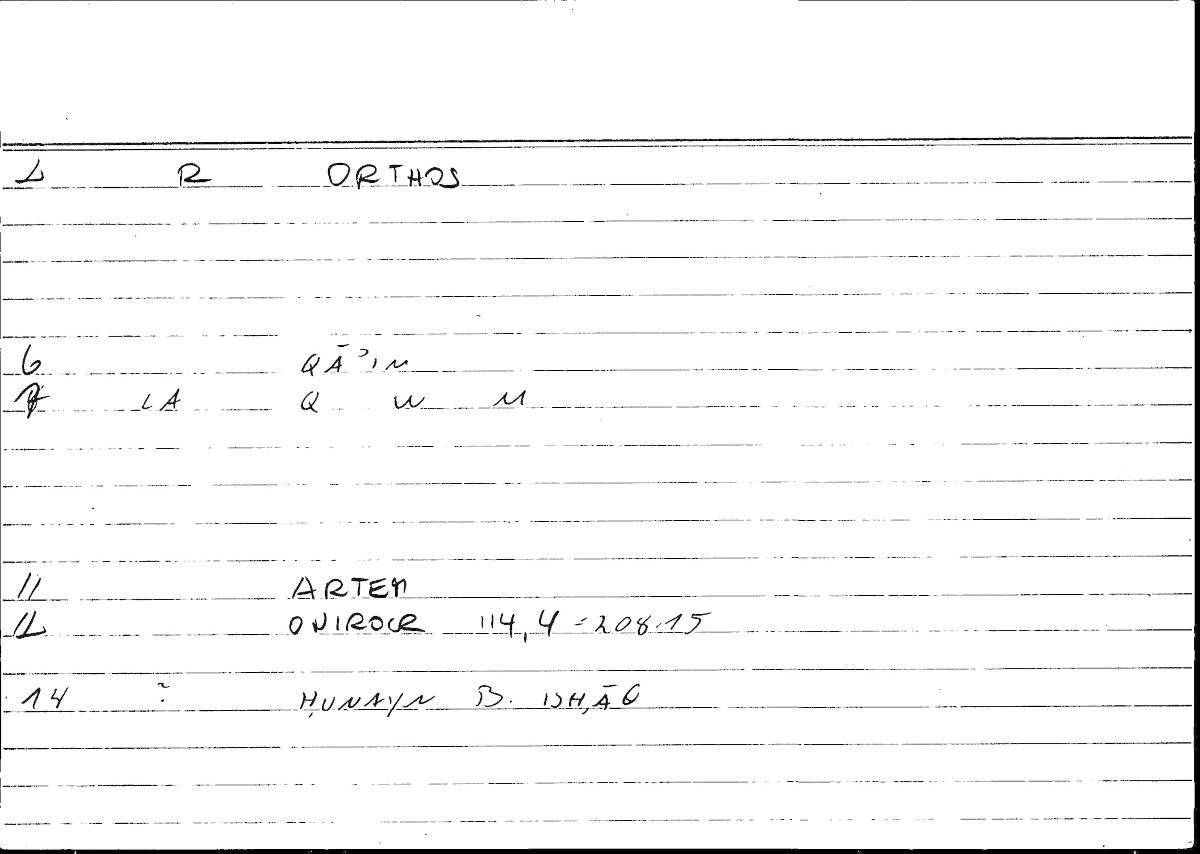 2 R ORTHOS
6 QĀʾIM
7 LA Q W M
11 ARTEM
12 ONIROCR 114,4 = 208.15
14 ? ḤUNAYN B. ISḤĀQ